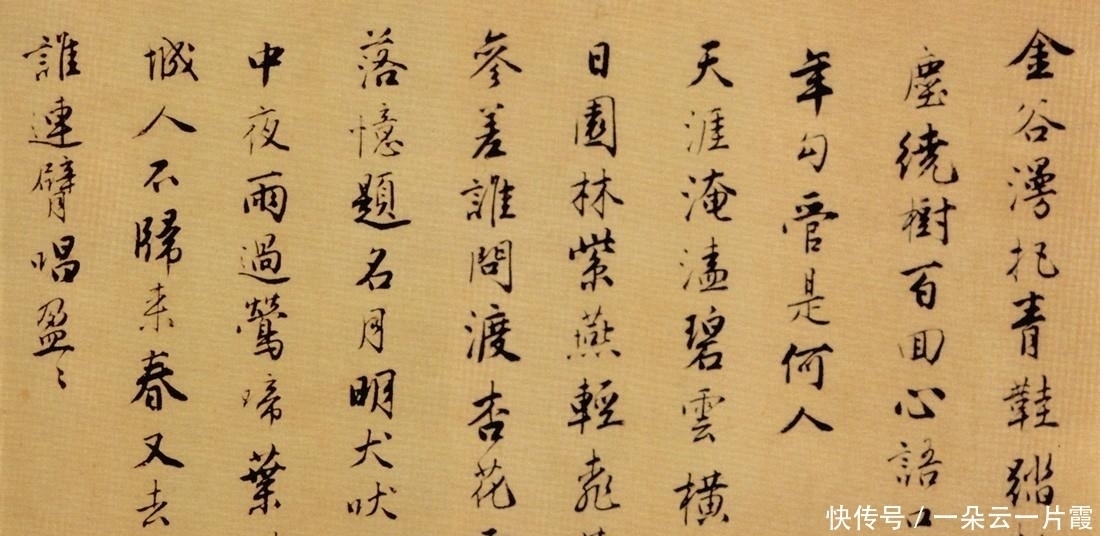 金谷漫把青鞋踏
塵繞樹百回心語
年勾管是何人
天涯淹溘碧雲橫
日園林紫燕輕飛
參差誰問渡杏花
落憶題名月明犬吠
中夜雨過鶯啼葉
城人不歸来春又去
誰連臂唱盈〻
快传号/一朵云一片霞